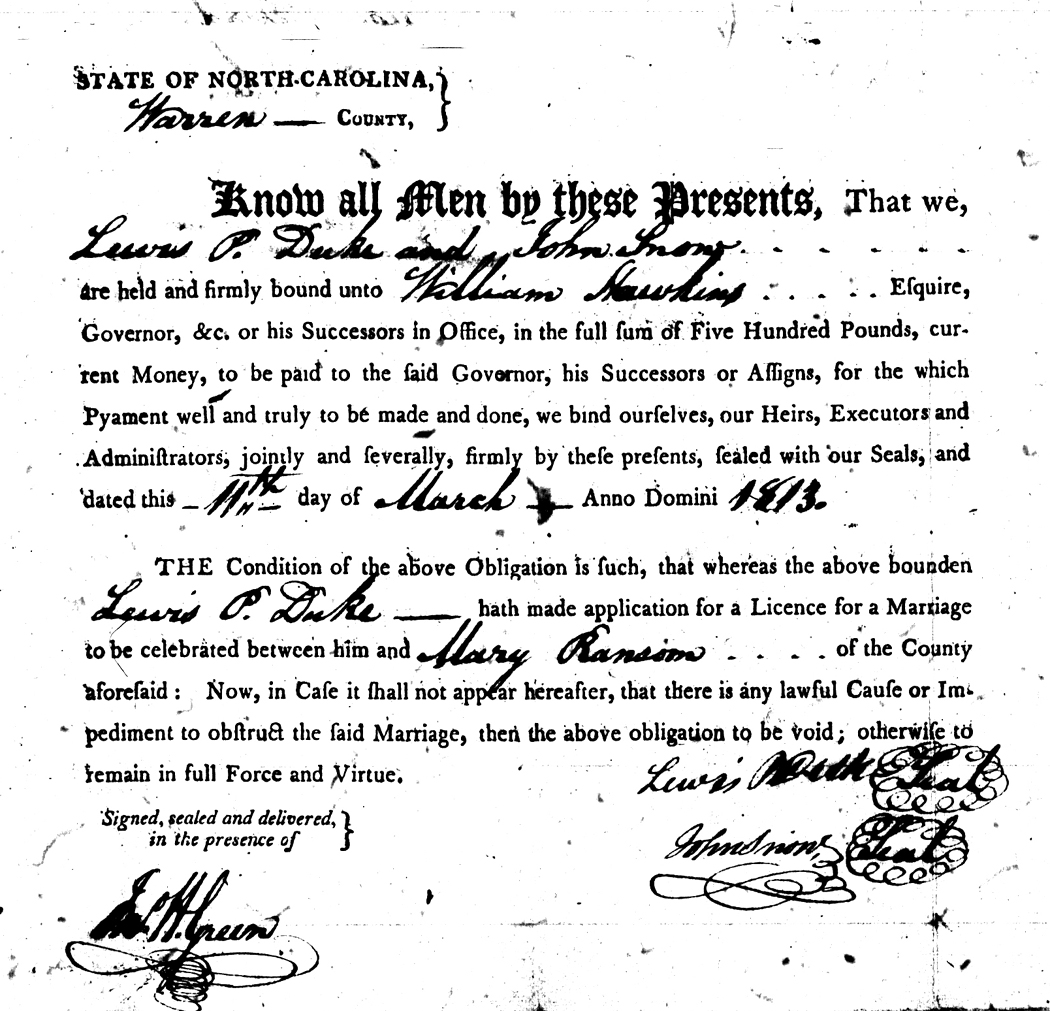 STATE OF NORTH-CAROLINA,
Warren — COUNTY,
Know all Men by these Presents, That we,
Lewis P. Duke and John Snow . . . . . .
are held and firmly bound unto William Hawkins . . . . . Eſquire,
Governor, &c. or his Successors in Office, in the full ſum of Five Hundred Pounds, cur-
rent Money, to be paid to the ſaid Governor, his Successors or Aſſigns, for the which
Pyament well and truly to be made and done, we bind ourſelves, our Heirs, Executors and
Adminiſtrators, jointly and ſeverally, firmly by theſe preſents, ſealed with our Seals, and
dated this – 11th – day of March — Anno Domini 1813.
THE Condition of the above Obligation is ſuch, that whereas the above bounden
Lewis P. Duke — hath made application for a Licence for a Marriage
to be celebrated between him and Mary Ransom . . . . of the County
aforeſaid : Now, in Caſe it ſhall not appear hereafter, that there is any lawful Cauſe or Im-
pediment to obſtruct the ſaid Marriage, then the above obligation to be void ; otherwiſe to
remain in full Force and Virtue.
Lewis P Duke Seal
Signed, sealed and delivered,
in the presence of
John Snow Seal
Jno. H. Green